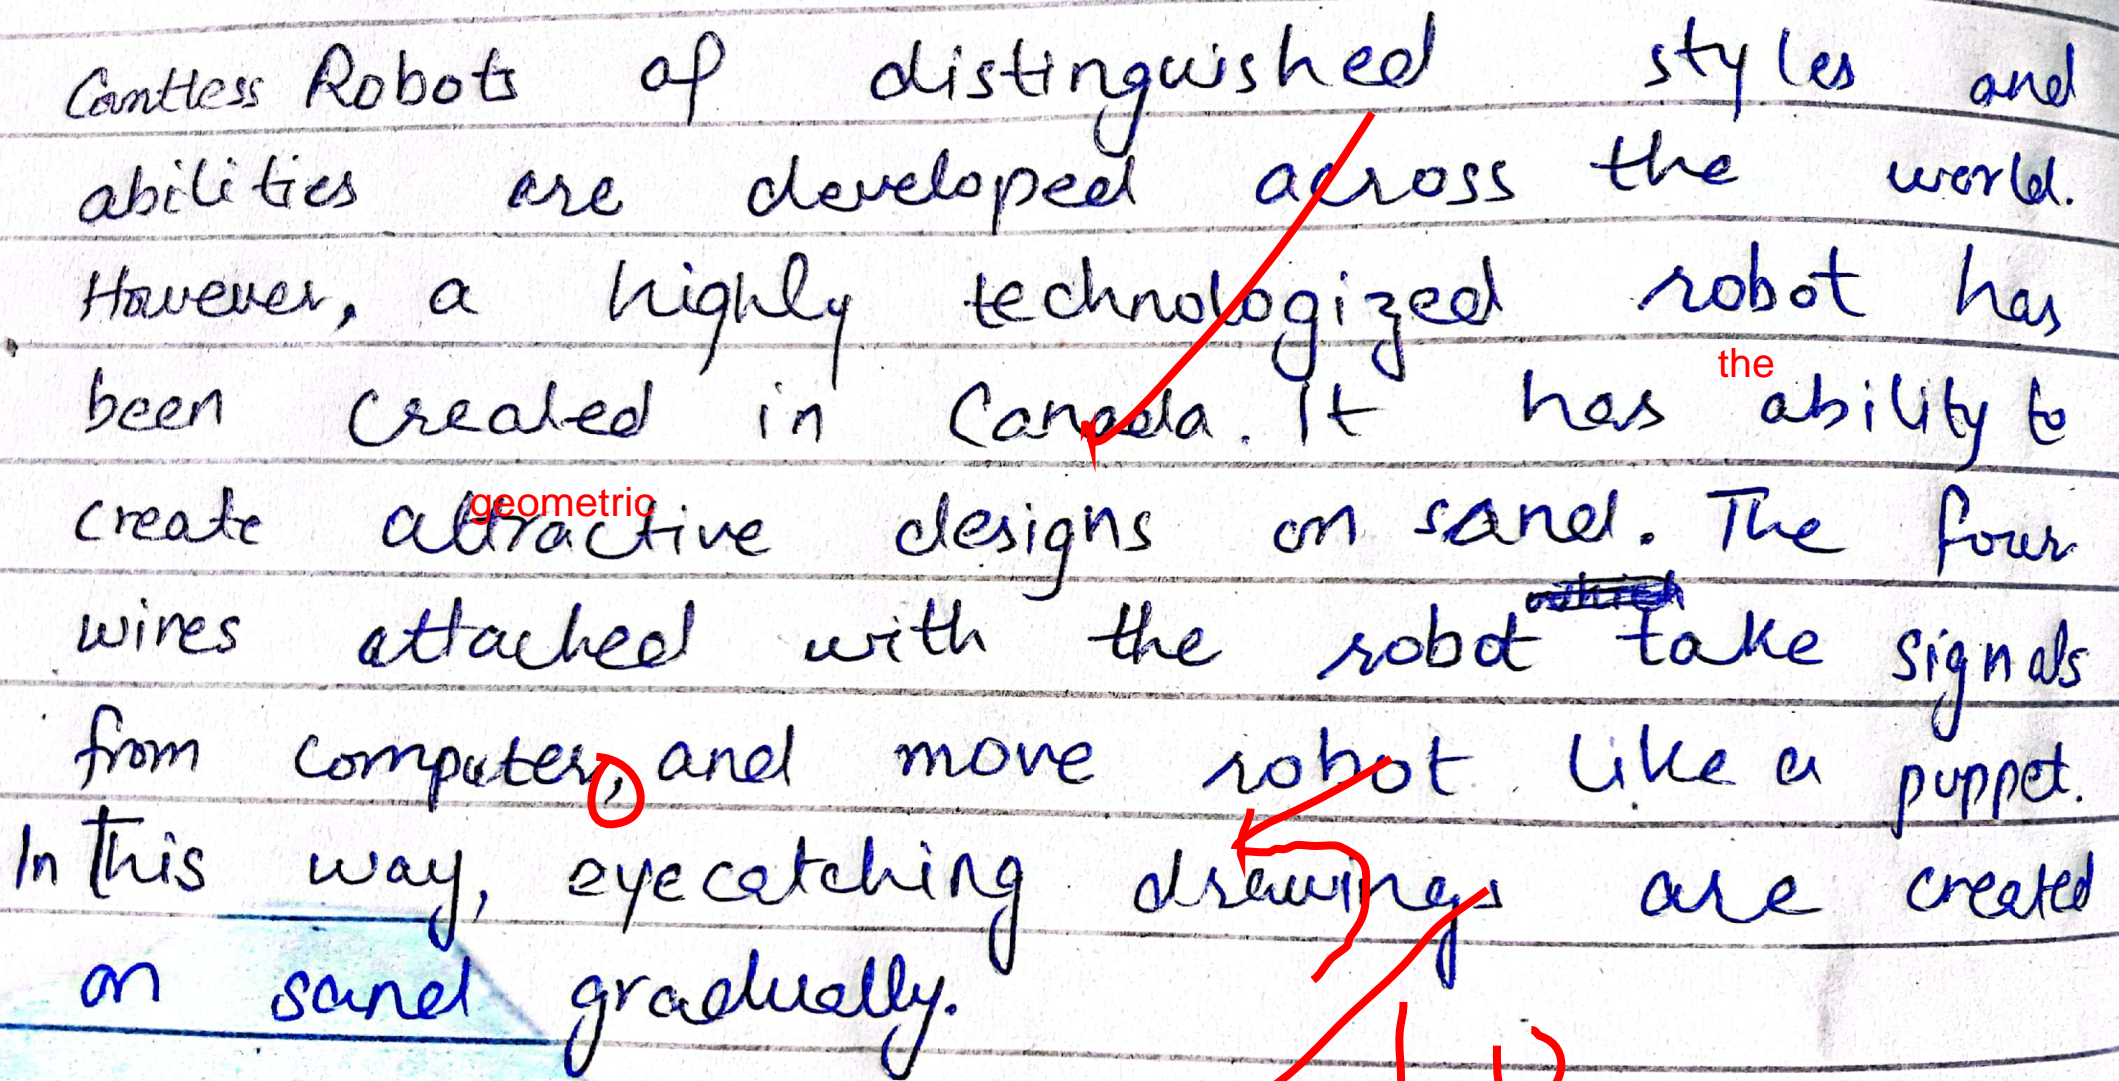 Countless Robots of distinguished styles and
abilities are developed across the world.
However, a highly technologized robot has
the
been created in Canada. It has ability to
geometric
create attractive designs on sand. The four
which
wires attached with the robot take signals
from computer, and move robot like a puppet.
In This way, eyecatching drawings are created
on sand gradually.